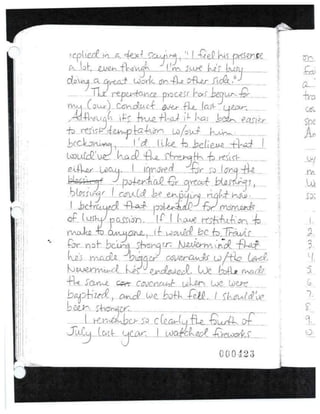 replied in a text saying, "I feel his presence
a lot, even though I'm sure he's busy
doing a great work on the other side."
The repentance process has begun for
my (our) conduct over the last year.
Although it's true that it has been easier
to resist temptation w/out him
beckoning, I'd like to believe that I
would've had the strength to resist
either way. I ignored for so long the
blessings potential for great blessings,
blessings I could be enjoying right now.
I betrayed that potential for moments
of lusty passion. If I have restitution to
make to anyone, it would be to Travis
for not being stronger. Nevermind that
he's made bigger covenants w/ the Lord.
Nevermind he's endowed. We both made
the same covenant when we were
baptized, and we both fell. I should've
been stronger.
I remember so clearly the fourth of
July last year. I watched fireworks
000423
1.
2.
3.
4.
5.
6.
7.
8.
9.